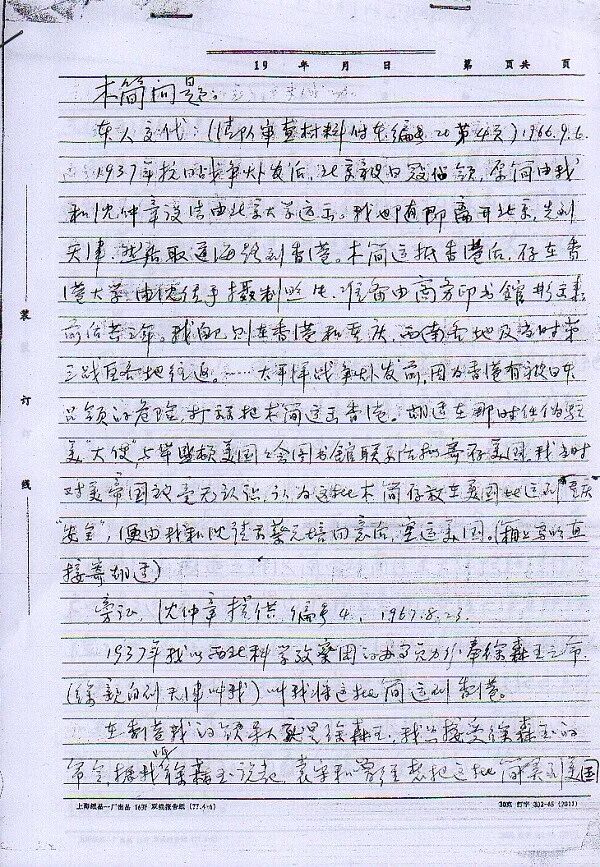 19 年 月 日 第 页共 页
木简问题。
本人交代：（清队审查材料 件东，编号20 第4页）1966.9.6.
1937年抗日战争外发后，北京被日寇占领，木简由我
和沈仲章设法由北京大学运出。我也随即离开北京，先到
天津，然后取道海路到香港。木简运抵香港后，存在香
港大学，由沈仲章摄制照片，准备由商务印书馆
前后共三年。我自己则在香港和重庆，西南各地及当时第
三战区各地往返。……太平洋战争外发前，因为香港有被日本
占领的危险，打算把木简运出香港。胡适在那时任伪驻
美“大使”，与华盛顿美国国会图书馆联系后把寄存美国，我当时
对美帝国毫无认识，认为这批木简存放在美国比运到重庆
“安全”，便由我和沈请示蔡元培同意后，寄运美国。（箱上写明直
接寄胡适）
旁证，沈仲章提供，编号4，1967.8.23.
1937年我以西北科学考察团的办事员身份奉徐森玉之命
（徐亲自到天津叫我）叫我将这批简运到香港。
在香港我的领导人就是徐森玉，我只接受徐森玉的
命令，据徐森玉说起，袁守和曾经想把这批简弄到美国
装
订
线
上海纸品一厂出品 16开 双线报告纸 (77.4-6)
30克 打字 302-65 (2017)